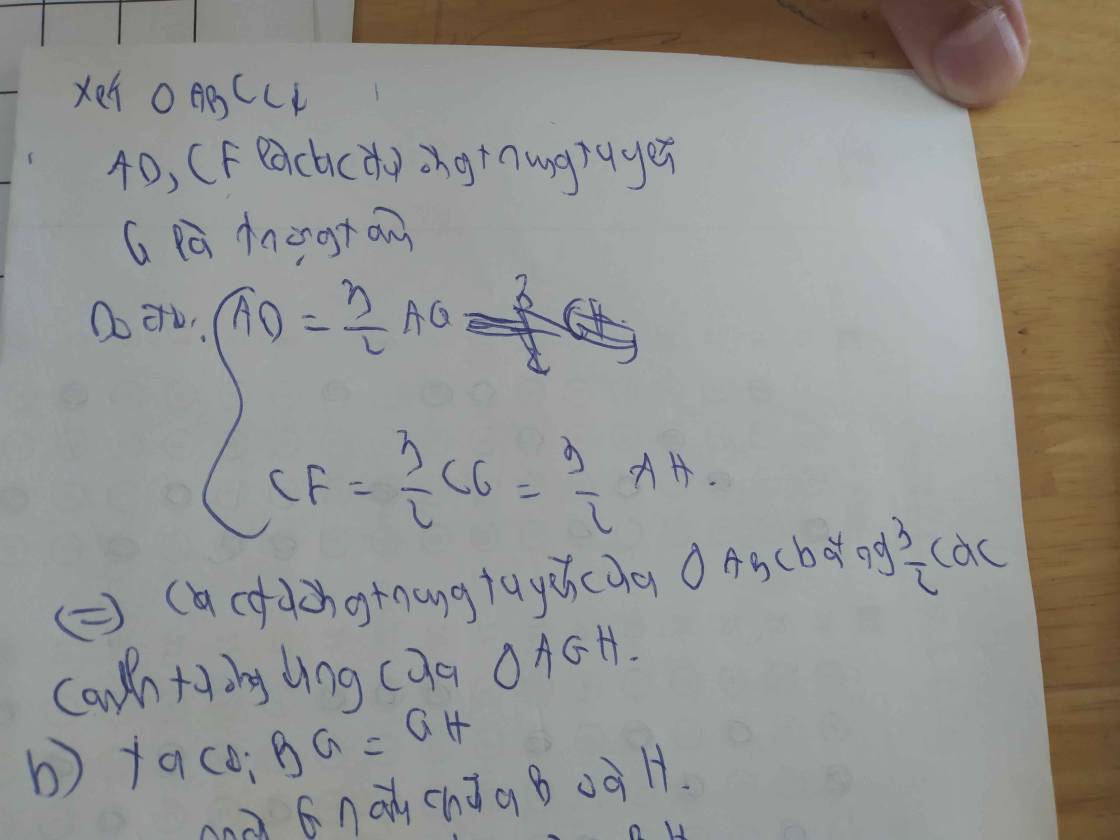 Xét Δ ABC có
AD, CF là các đường trung tuyến
G là trọng tâm
Do đó: AD = 3/2 AG
CF = 3/2 CG = 3/2 AH.
(=) Các đường trung tuyến của Δ ABC bằng 3/2 các
cạnh tương ứng của Δ AGH.
b) ta có: BG = GH
mà G nằm giữa B và H.
BH